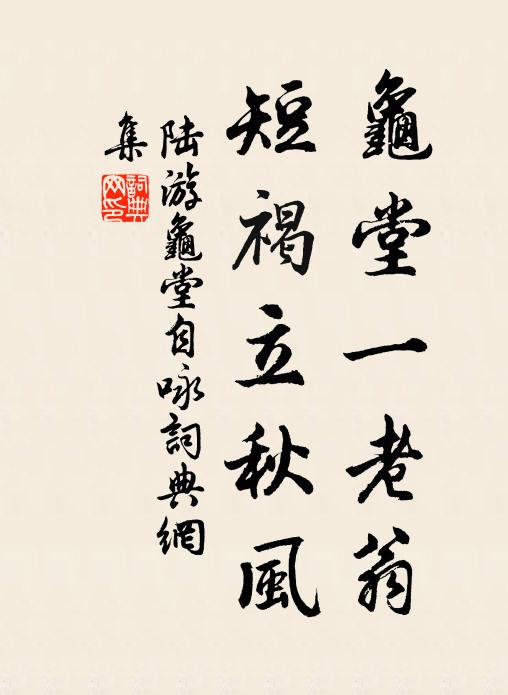 龜堂一老翁
短褐立秋風
陸游龜堂自咏詞典網
集
詞典
网印